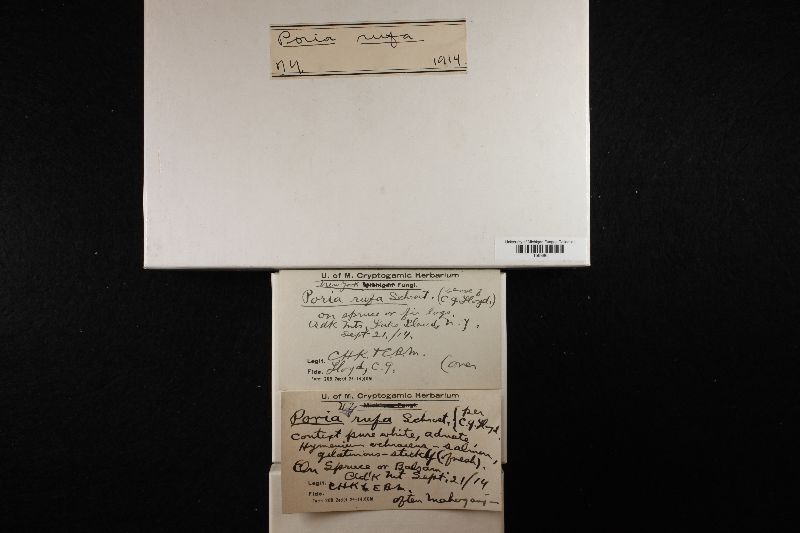 Poria rufa
N.Y. 1914.
University of Michigan Fungus Collection
U. of M. Cryptogamic Herbarium
New York Michigan Fungi.
Poria rufa Schrat. (sense of
C G Lloyd.)
on spruce or fir logs.
Adk Mts, Lake Placid, N.Y.
Sept 21,/14.
Legit. CHK. + CBM.
Fide. Lloyd, C.G. (over
U. of M. Cryptogamic Herbarium
N.Y. Michigan Fungi.
Poria rufa Schrat. (per
C G Lloyd.
Context pure white, adnate
Hymenium ochraceus - salmon,
gelatinous - stickly (fresh).
On Spruce or Balsam
Adk Mt Sept. 21/14
Legit. CHK & EBM.
Fide. often mahogany -